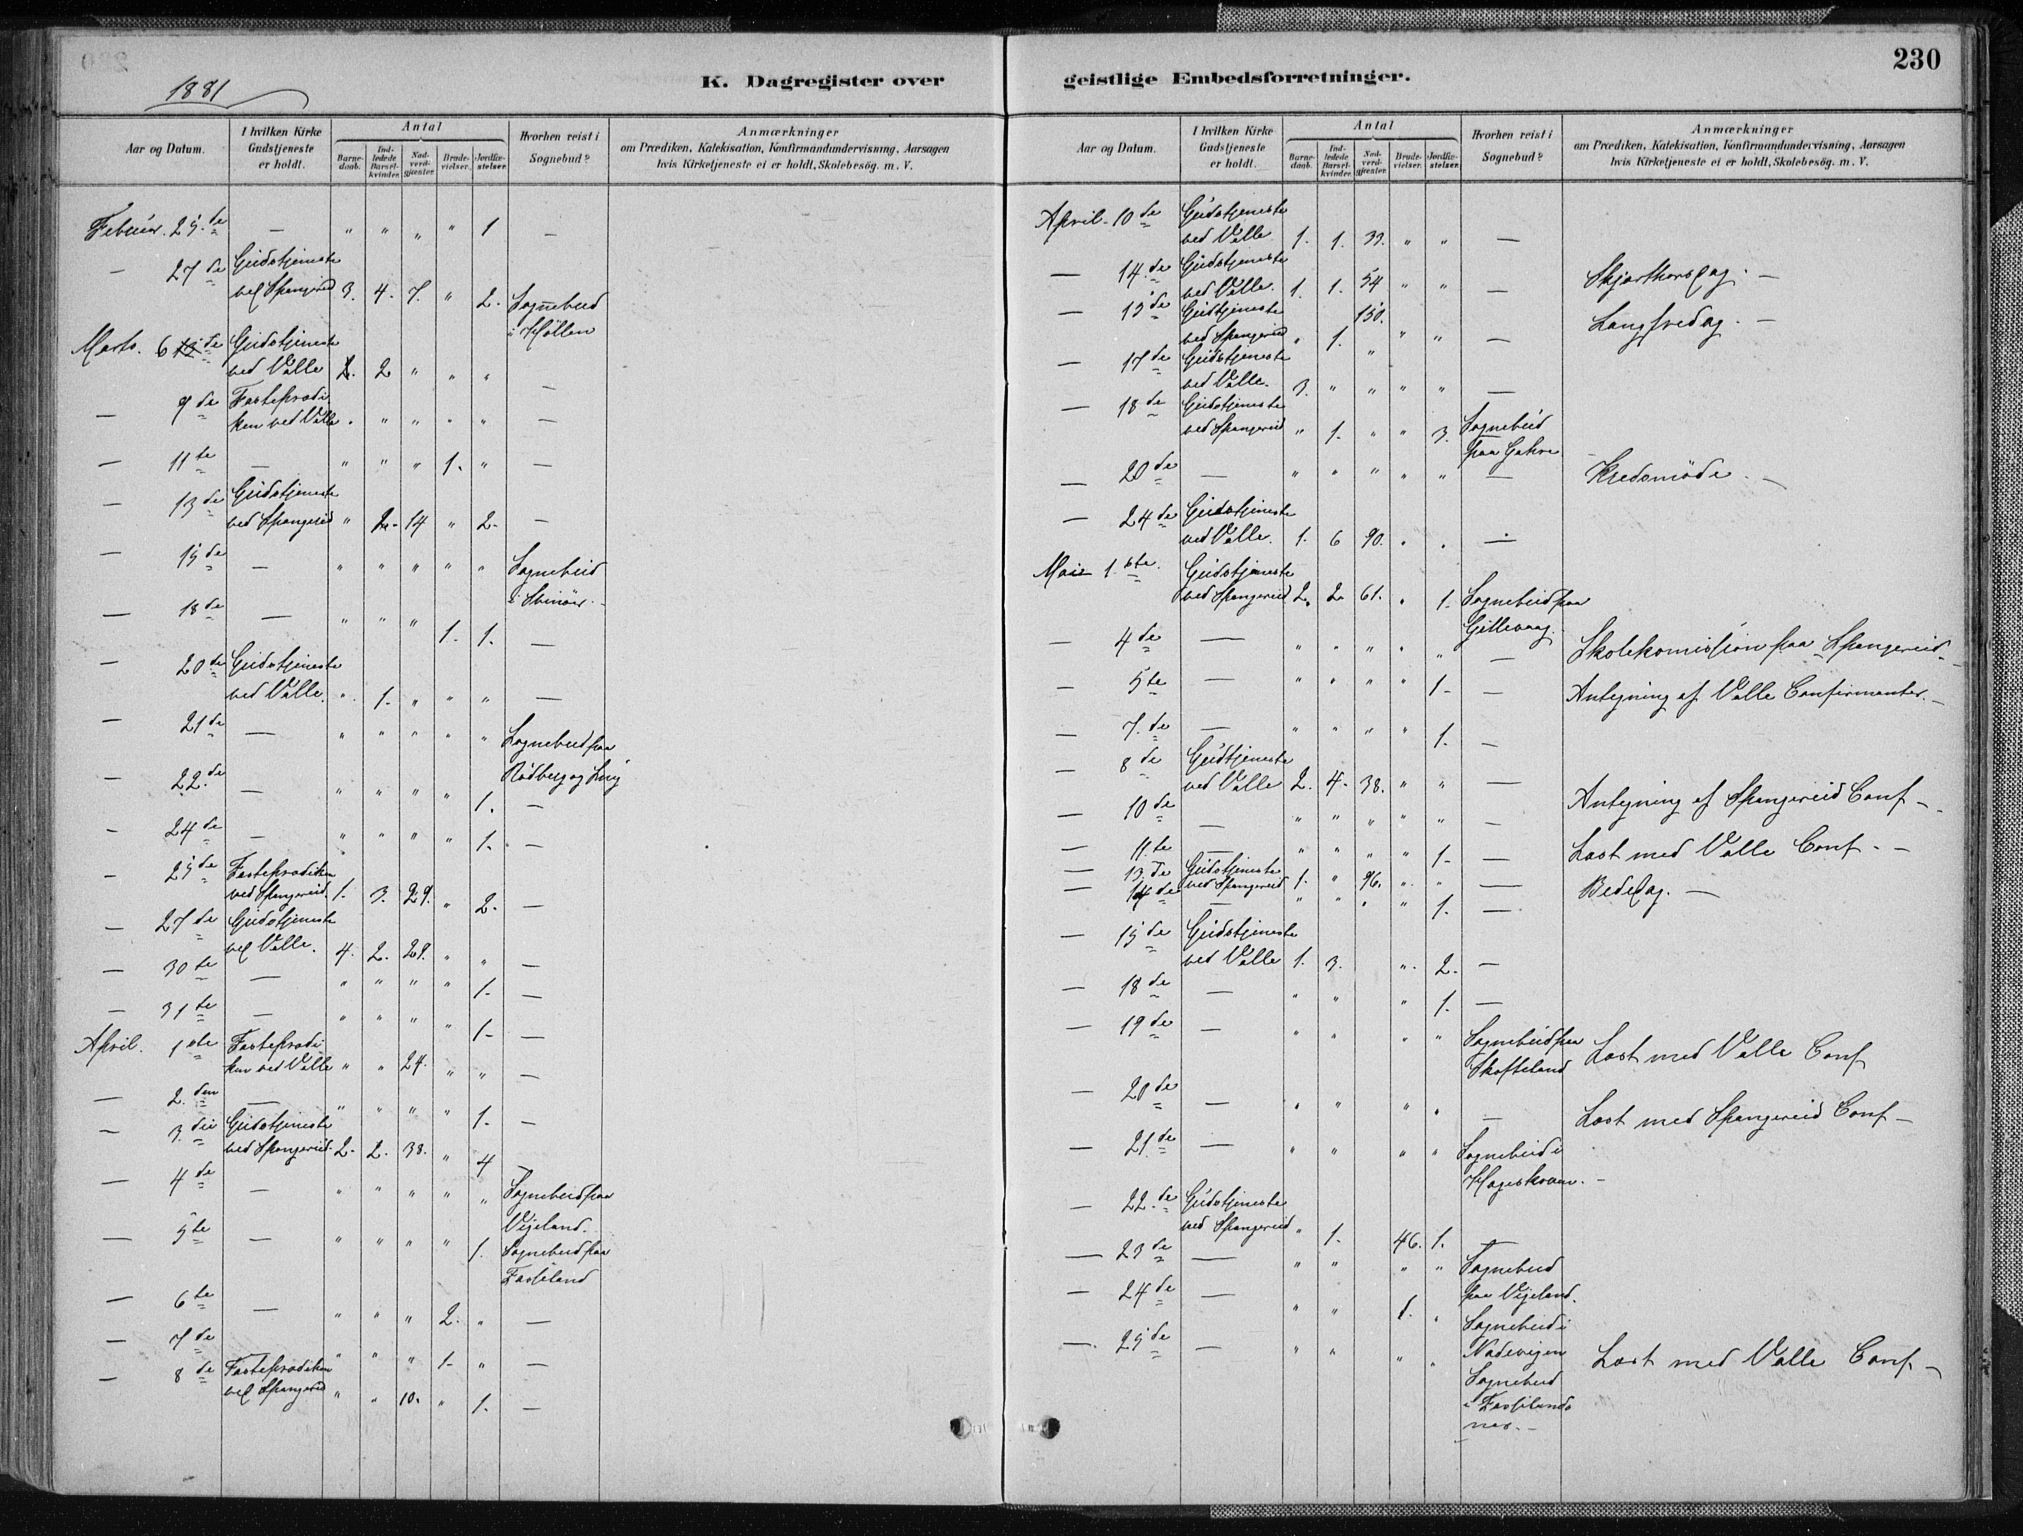 230
1881
K. Dagregister over geistlige Embedsforretninger.
Aar og Datum. I hvilken Kirke Gudstjeneste er holdt. Antal Barnedaab. Indledede Barselkvinder. Nadverdgjæster. Brudevielser. Jordfæstelser. Hvorhen reist i Sognebud? Anmærkninger om Prædiken, Katekisation, Konfirmandundervisning, Aarsagen hvis Kirketjeneste ei er holdt, Skolebesøg. m. V.
Februar. 25.de — " " " " 1 —
— 27de Gudstjeneste
ved Spangereid 3. 4. 7. " 2. Sognebud
i Høllen
Marts. 6 de Gudstjeneste
ved Valle 2. 2 " " "
— 9de Fasteprædi
ken ved Valle " " " " " —
— 11te — " " " 1. " —
— 13de Gudstjeneste
ved Spangereid " 2.- 14 " 2.- —
— 15de — " " " " " Sognebud
i Svinør.-
— 18de — " " " 1. 1. —
— 20de Gudstjeneste
ved Valle. " 1. " " " —
— 21de — " " " " " Sognebud paa
Rødberg og
— 22.de — " " " " 1. —
— 24de — " " " " 1.- —
— 25de Fasteprædiken
ved Spangereid. 1. 3. 29. " 2.- —
— 27de Gudstjeneste
ved Valle. 4. 2. 28. " " —
— 30te — " " " " 1.- —
— 31te — " " " " 1.- —
April. 1ste Fasteprædi
ken ved Valle " " 24. " " —
— 2.den — " " " " 1.- —
— 3.die Gudstjeneste
ved Spangereid. 2.- 2. 38. " 4 —
— 4de — " " " " " Sognebud paa
Vigeland.
— 5te — " " " " 1. Sognebud paa
Fasseland
— 6te — " " " 2. " —
— 7de " " " 1.- " —
— 8de Fasteprædiken
ved Spangereid " " 10. " 1.- —
Aar og Datum. I hvilken Kirke Gudstjeneste er holdt. Antal Barnedaab. Indledede Barselkvinder. Nadverdgjæster. Brudevielser. Jordfæstelser. Hvorhen reist i Sognebud? Anmærkninger om Prædiken, Katekisation, Konfirmandundervisning, Aarsagen hvis Kirketjeneste ei er holdt, Skolebesøg. m. V.
April. 10de Gudstjeneste
ved Valle 1. 1. 33. " " —
— 14.de Gudstjeneste
ved Valle. 1. 1. 54 " " — Skjærthorsdag. —
— 15de Gudstjeneste
ved Spangereid " 1. 150. " " — Langfredag. —
— 17de Gudstjeneste
ved Valle. 3. " " " " —
— 18de Gudstjeneste
ved Spangereid " 1. " " 3. Sognebud
paa Gahre
— 20de — " " " " " — Kredsmøde. —
— 24de Gudstjeneste
ved Valle. 1. 6 90. " " —
Mai 1.ste. Gudstjeneste
ved Spangereid 2. 2 61. " 1.- Sognebud paa
Gillevaag.
— 4de — " " " " " — Skolekomission paa Spangereid.-
— 5te — " " " " 1.- — Antegning af Valle Confirmanter.-
— 7.de — " " " " 1. —
— 8de Gudstjeneste
ved Valle 2. 4. 38. " " —
— 10de — " " " " " — Antegning af Spangereid Conf.-
— 11.te — " " " " 1.- — Læst med Valle Conf.-
— 13.de Gudstjeneste
ved Spangereid 1. " 96. " " — Bededag. —
— 14de — " " " " 1. —
— 15de Gudstjeneste
ved Valle 1. 3. " 2. —
— 18de — " " " 1. —
— 19de — " " " " Sognebud paa
Skofteland Læst med Valle Conf
— 20de — " " " " — Læst med Spangereid Conf.-
— 21.de — " " " " Sognebud i
Hageskoven.-
— 22.de Gudstjeneste
ved Spangereid " 1. 46. 1. —
— 23de — " " " " Sognebud
paa Vigeland.
— 24de — " " 1. " Sognebud i
Nødevigen
— 25de — " " " " Sognebud
i Fasselands
nes.- Læst med Valle Conf.-